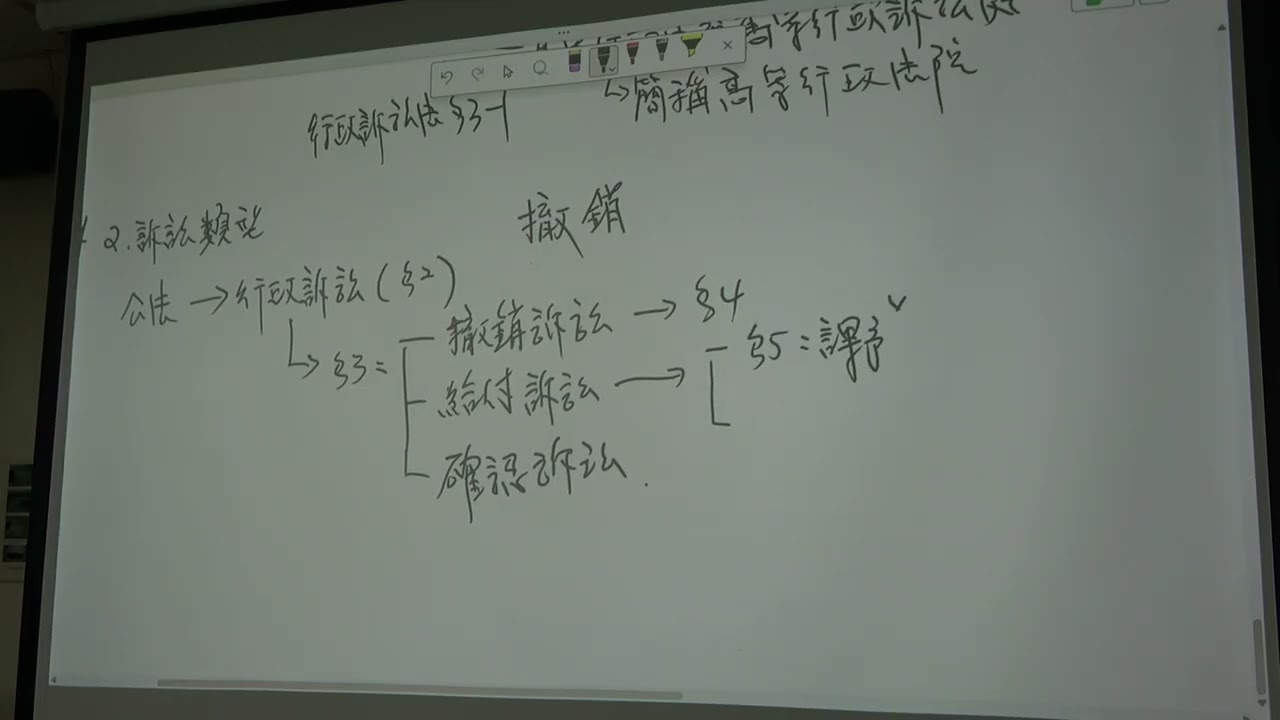 高等行政訴訟庭
↳簡稱高等行政法院
行政訴訟法§3-1
2.訴訟類型
撤銷
公法→行政訴訟(§2)
↳§3=
撤銷訴訟→§4
給付訴訟→
§5:課予
確認訴訟.